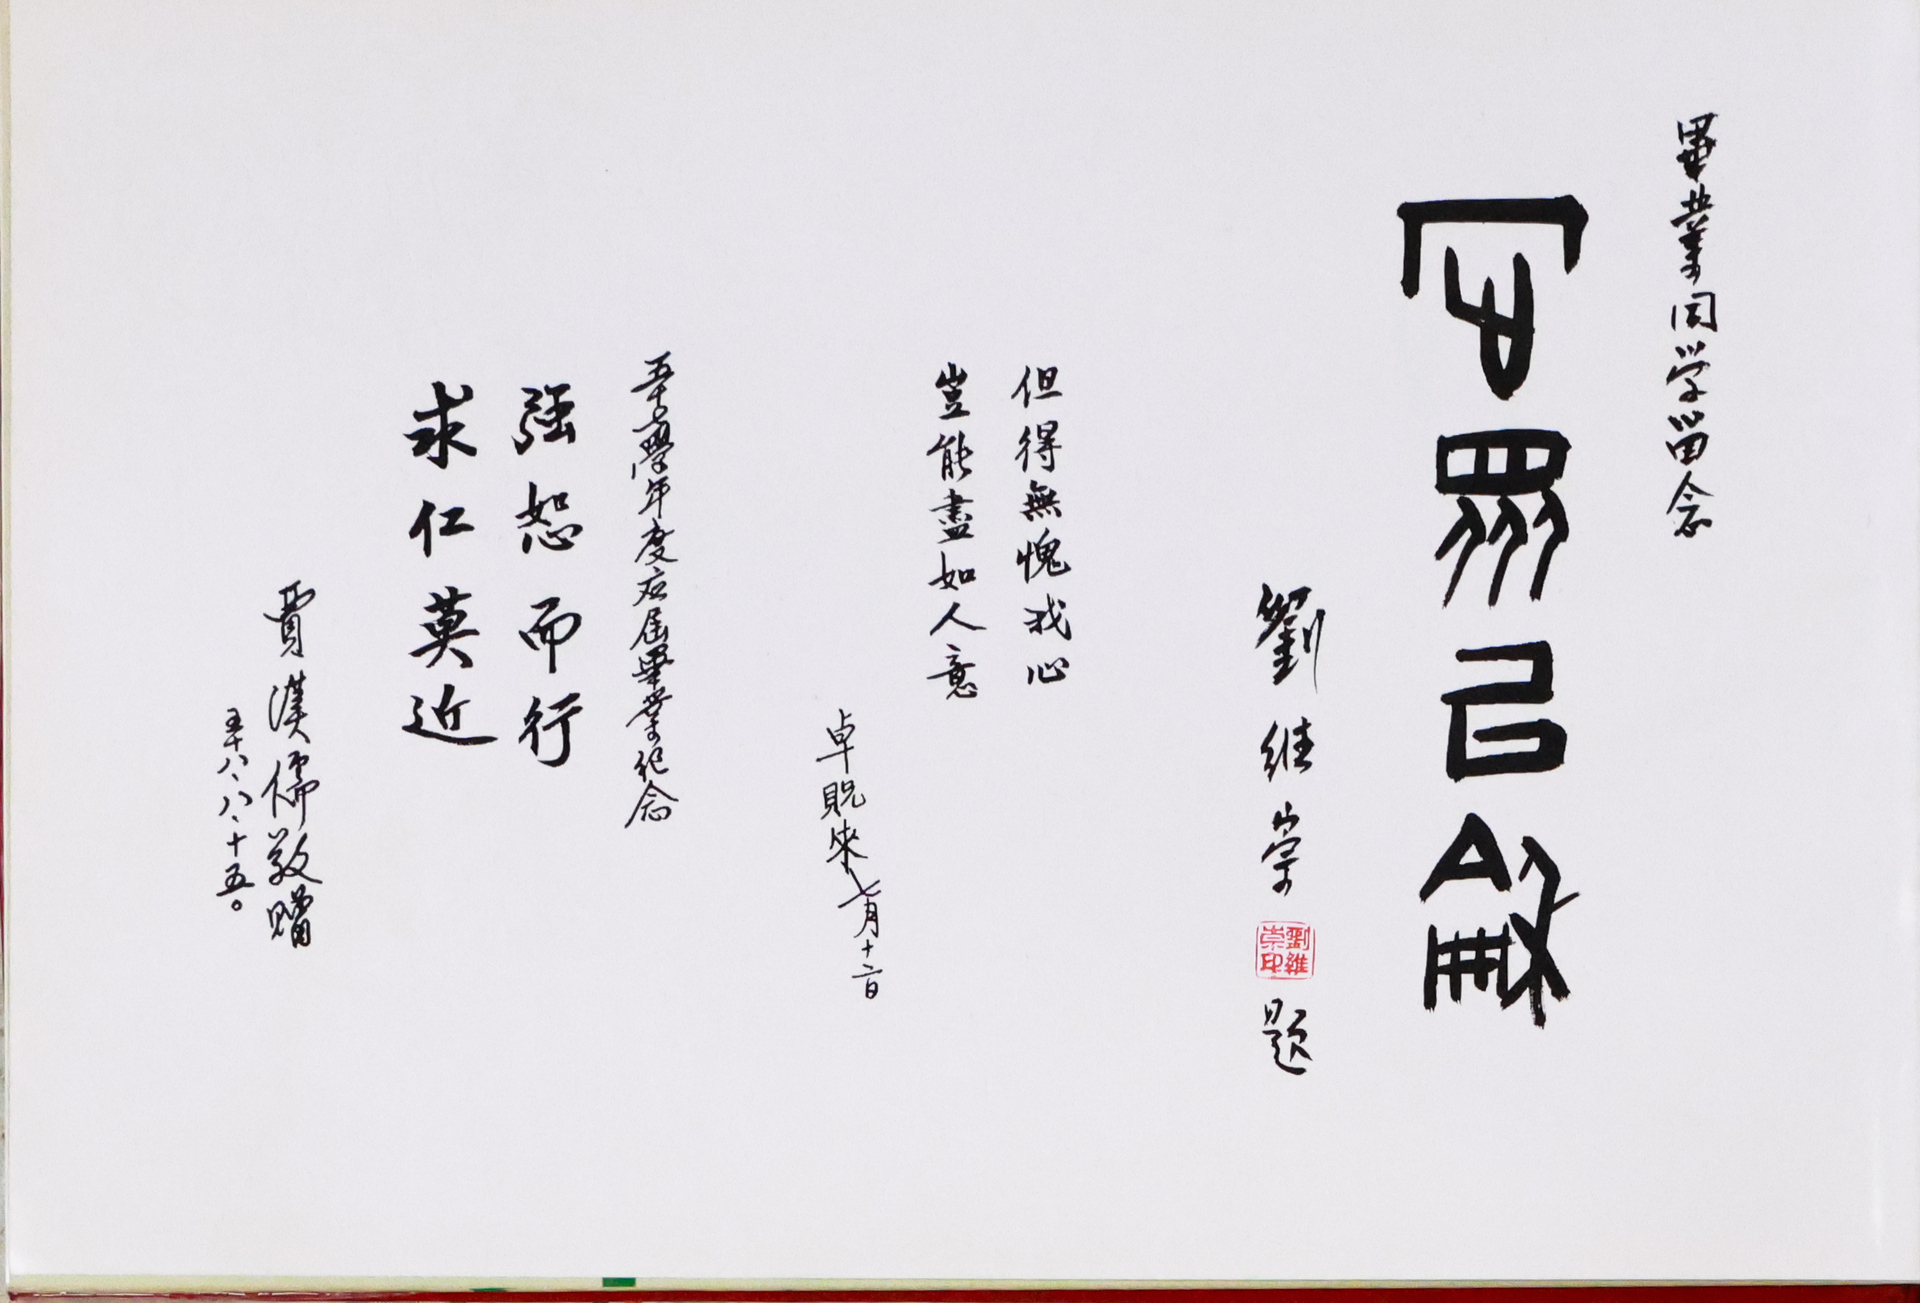 畢業同学留念
眾己龢
劉維崇
劉維崇印
題
但得無愧我心
豈能盡如人意
卓貺來七月十二日
五十七學年度应届畢業纪念
強恕而行
求仁莫近
賈漢儒敬贈
五十八、八、十五。